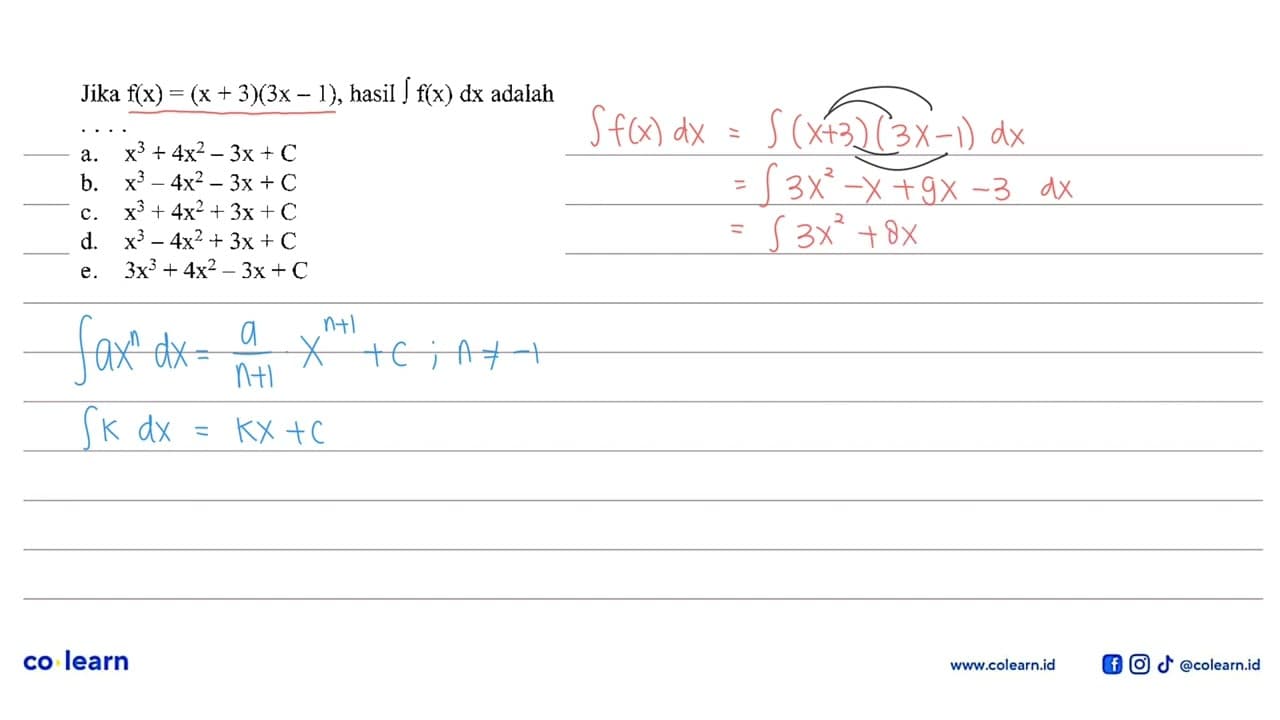 Jika f(x) = (x + 3)(3x – 1), hasil ∫ f(x) dx adalah
. . . .
a. x³ + 4x² – 3x + C
b. x³ – 4x² – 3x + C
c. x³ + 4x² + 3x + C
d. x³ – 4x² + 3x + C
e. 3x³ + 4x² – 3x + C
∫f(x) dx = ∫(x+3)(3x-1) dx
= ∫3x² -x +9x -3 dx
= ∫3x² +8x
∫axⁿ dx = a/(n+1) · xⁿ⁺¹ + c ; n ≠ -1
∫k dx = kx + c
co learn
www.colearn.id
@colearn.id